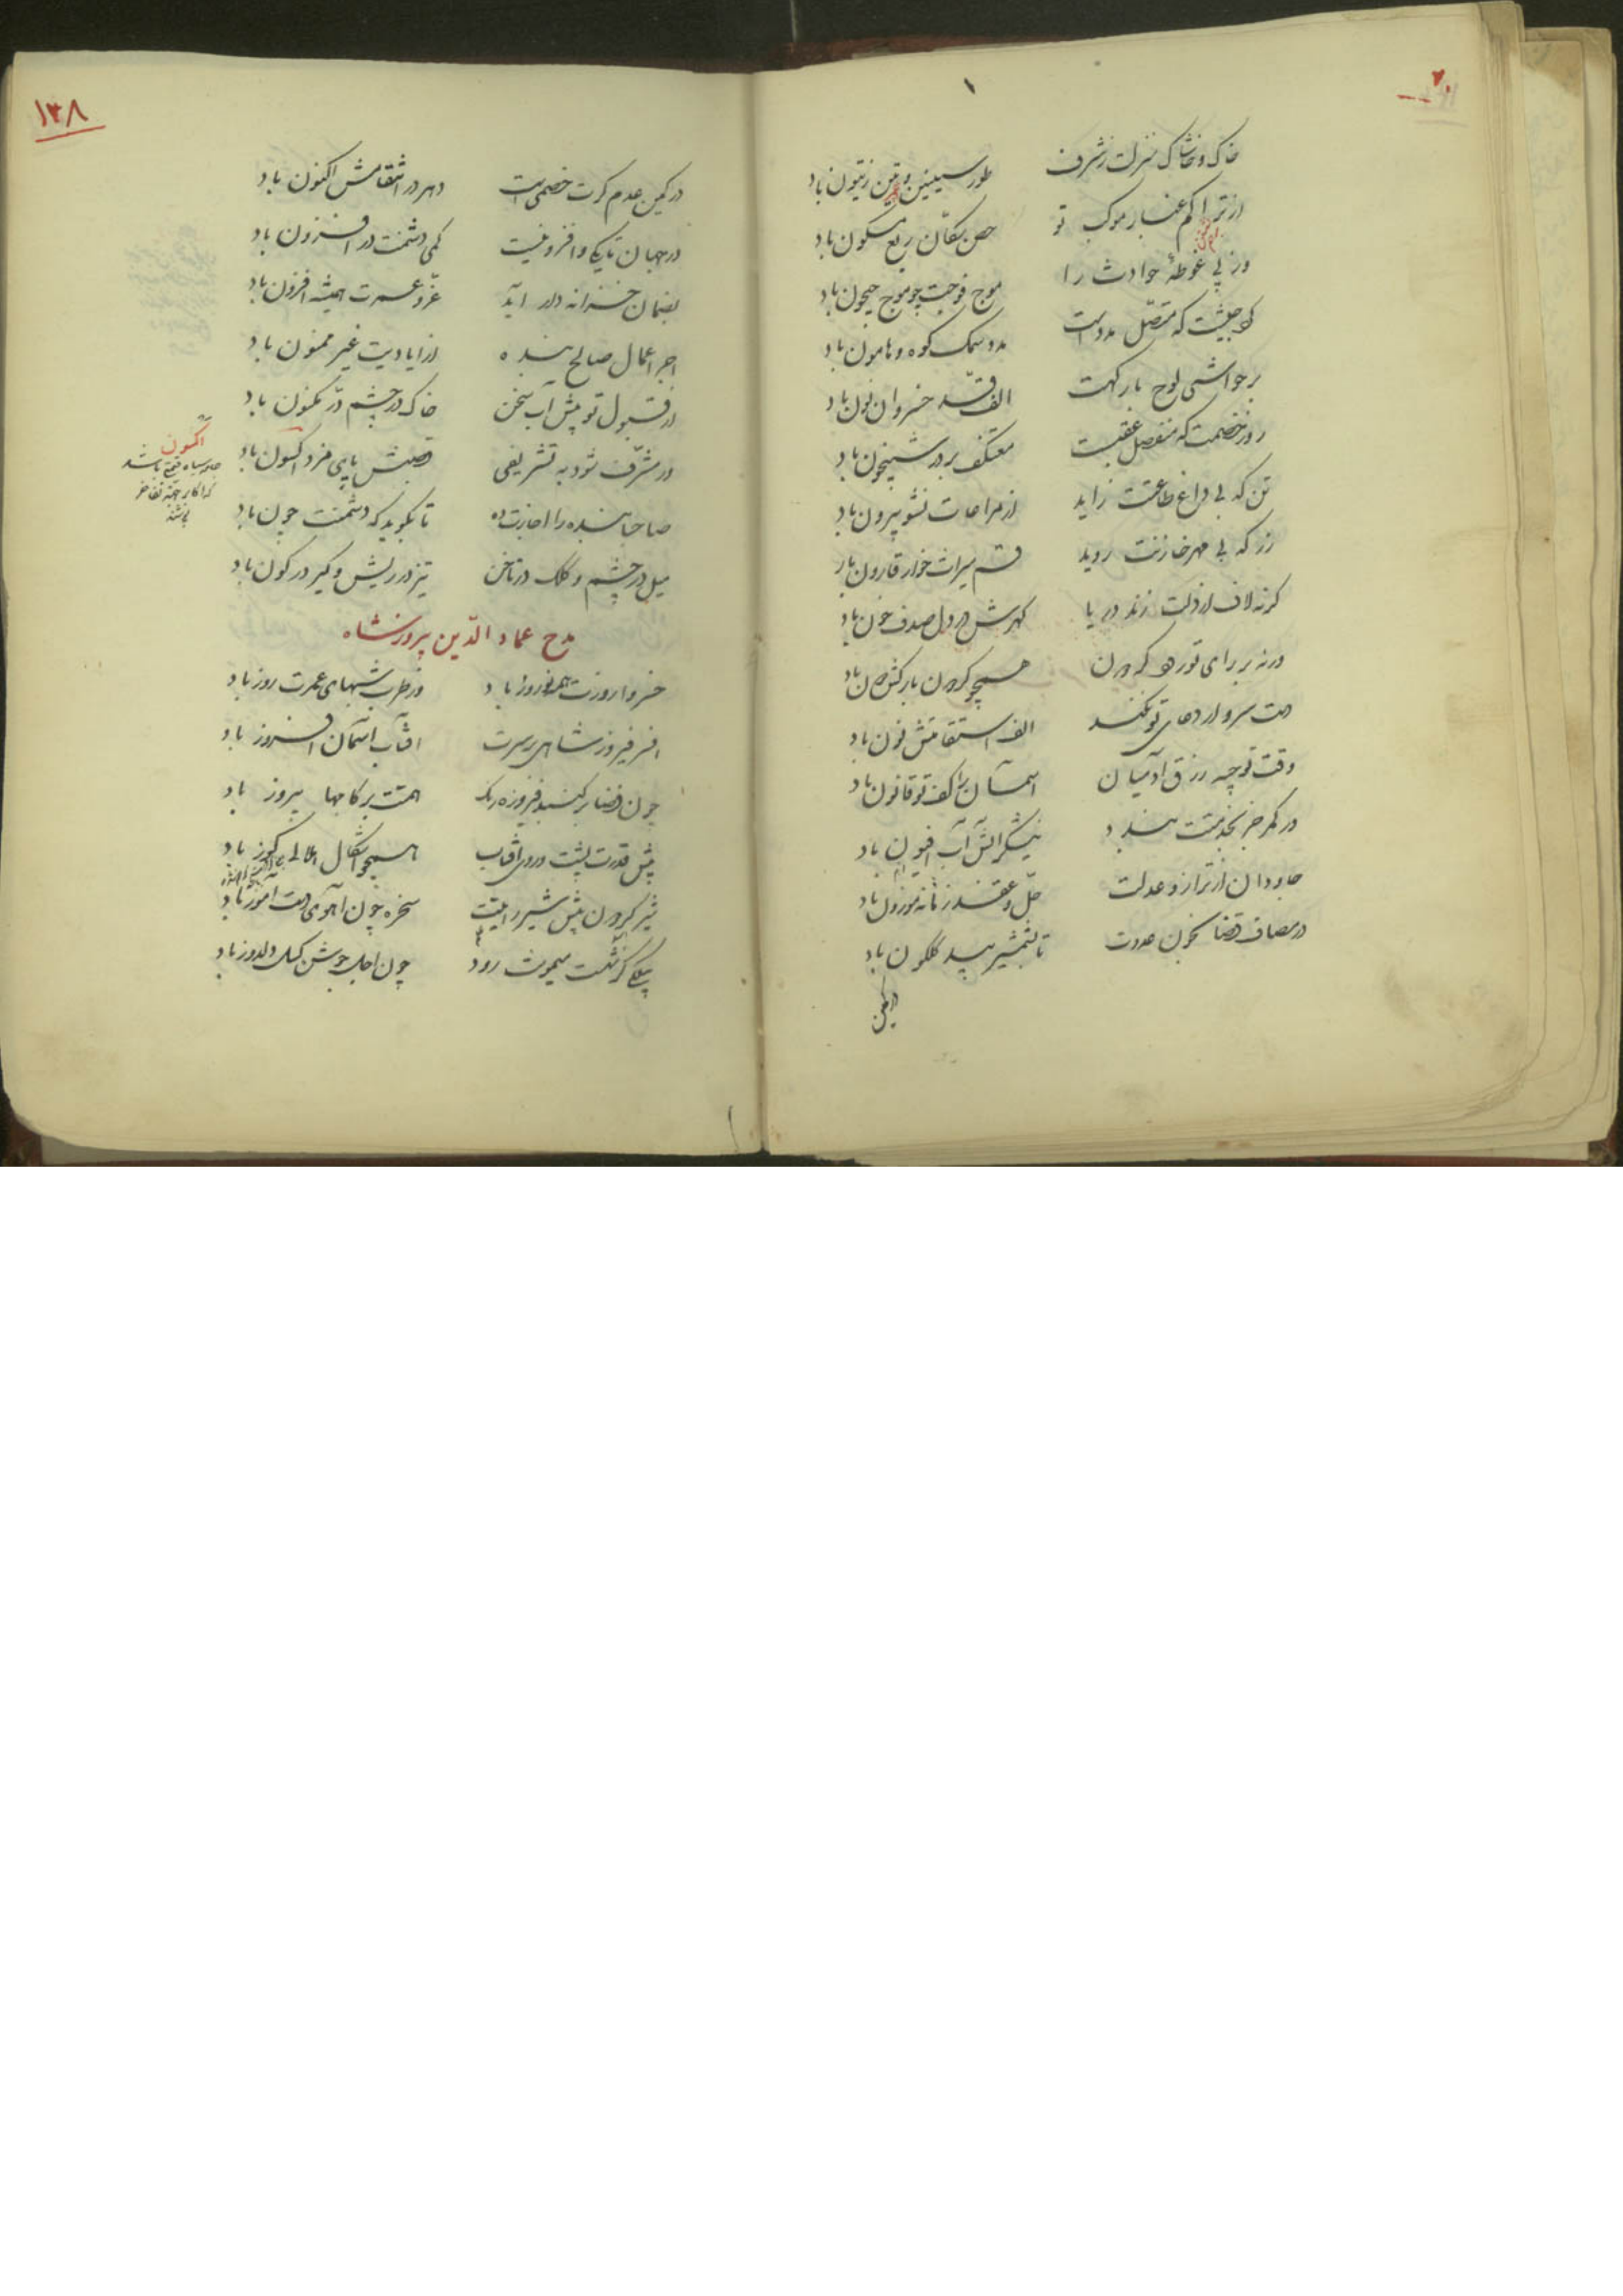 خاک و خاشاک منزلت ز شرف
طور سینین و تین زیتون باد
از تراکم غبار موکب تو
حصن سکان ربع مسکون باد
وز پی غوطهٔ حوادث را
موج فوجت چو موج جیحون باد
که متصل مدد است
مدد سمک کوه و هامون باد
بر حواشی لوح بارگهت
الف قد خسروان نون باد
روز خصمت که منفصل عقبست
معتکف بر در شبیخون باد
تن که بی داغ طاعتت زاید
از مراعات نشو بیرون باد
زر که بی مهر خازنت روید
قسم میراث خوار قارون باد
گر نه لاف از دلت زند دریا
گهرش در دل صدف خون باد
ورنه بر رای تو رود گردون
همچو گردون بارکش دون باد
دست سرو ار دعای تو نکند
الف استقامتش نون باد
وقت توجیه رزق آدمیان
آسمان را کف تو قانون باد
در کمر جز بخدمتت بندد
نیشکر آتش آب افیون باد
جاودان از ترازو عدلت
حل و عقد زمانه موزون باد
در مصاف قضا بخون عدوت
تا بشمشیر بید گلگون باد
در کمین
۱۳۸
در کمین عدم گرت خصمی است
دهر در انتقامش اکنون باد
در جهان تا کمی و افزونیست
کمی دشمنت در افزون باد
بضمان خزانه دار ابد
عز و عمرت همیشه افزون باد
اجر اعمال صالح بنده
از ایادیت غیر ممنون باد
از قبول تو پیش آب سخن
خاک در چشم در مکنون باد
ور مشرف شود به تشریفی
قصبش پای مزد اکسون باد
صاحبا بنده را اجازت ده
تا بگوید که دشمنت چون باد
میل در چشم و کلک در ناخن
تیز در ریش و کیر در کون باد
اکسون
جامه سیاه قیمتی باشد
که اکابر جهة تفاخر
پوشند
مدح عماد الدین پیروزشاه
خسروا روزت همه نوروز باد
وز طرب شبهای عمرت روز باد
افسر فیروز شاهی بر سرت
آفتاب آسمان افروز باد
چون قضا بر گنبد فیروزه رنگ
همتت بر کامها پیروز باد
پیش قدرت پشت و روی آفتاب
همچو اشکال هلالی کوز باد
شیر گردون پیش شیر رایتت
سخره چون آهوی دست آموز باد
پیکی کز شستت سیموت رود
چون اجل جوشن گسل دلدوز باد